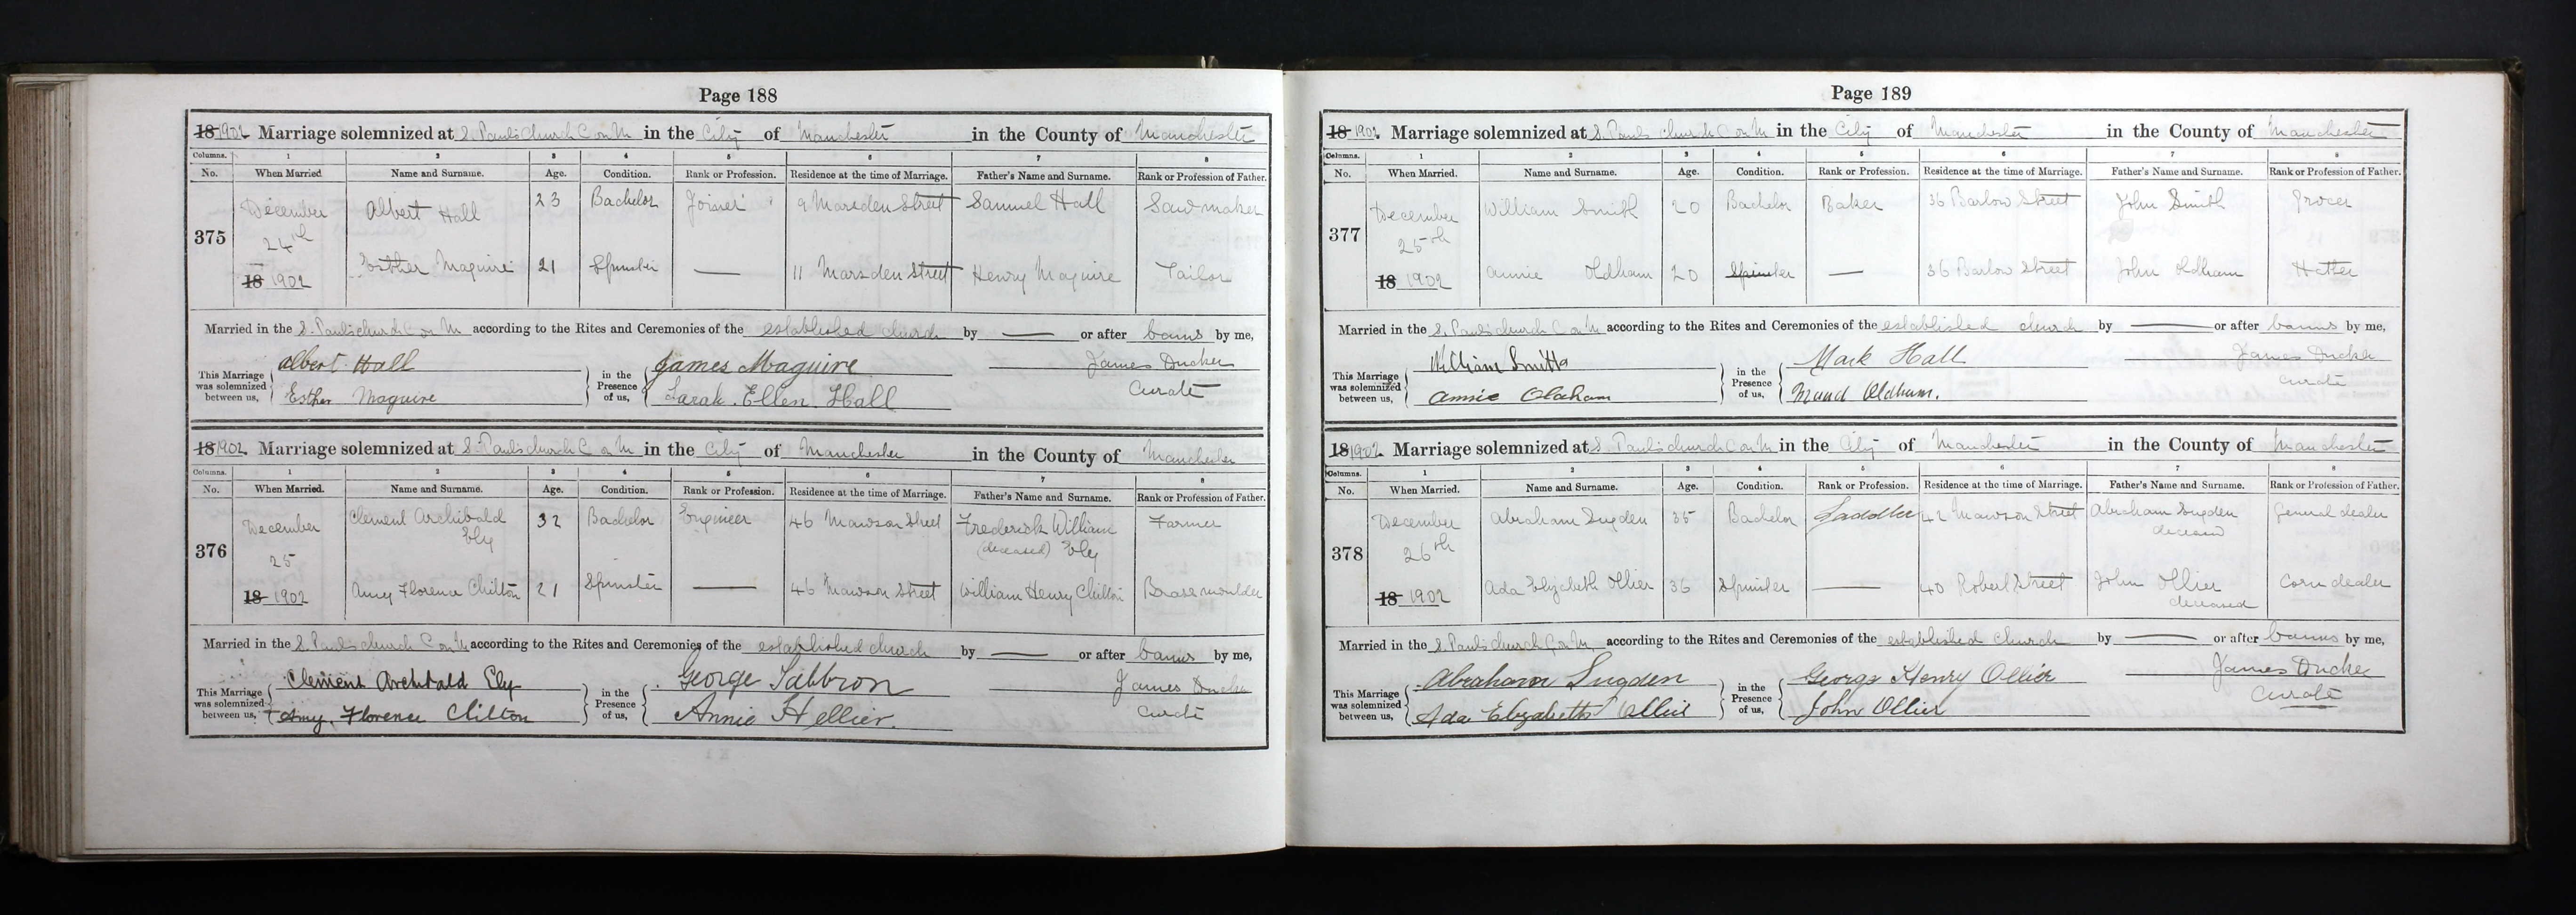 Page 188
18 1902 Marriage solemnized at S. Pauls church C on M in the City of Manchester in the County of Manchester
Columns. 1 2 3 4 5 6 7 8
No. When Married. Name and Surname. Age. Condition. Rank or Profession. Residence at the time of Marriage. Father's Name and Surname. Rank or Profession of Father.
375 December 24th 18 1902
Albert Hall 23 Bachelor Joiner 9 Marsden Street Samuel Hall Saw maker
Esther Maguire 21 Spinster — 11 Marsden Street Henry Maguire Tailor
Married in the S. Pauls church C on M according to the Rites and Ceremonies of the established church by — or after banns by me,
This Marriage was solemnized between us,
Albert Hall
Esther Maguire
in the Presence of us,
James Maguire
Sarah Ellen Hall
James Ducker
Curate
18 1902 Marriage solemnized at S. Pauls church C on M in the City of Manchester in the County of Manchester
Columns. 1 2 3 4 5 6 7 8
No. When Married. Name and Surname. Age. Condition. Rank or Profession. Residence at the time of Marriage. Father's Name and Surname. Rank or Profession of Father.
376 December 25 18 1902
Clement Archibald Ely 32 Bachelor Engineer 46 Mawson Street Frederick William Ely (deceased) Farmer
Amy Florence Chilton 21 Spinster — 46 Mawson Street William Henry Chilton Brass moulder
Married in the S. Pauls church C on M according to the Rites and Ceremonies of the established church by — or after banns by me,
This Marriage was solemnized between us,
Clement Archibald Ely
Amy Florence Chilton
in the Presence of us,
George Tabbron
Annie Hellier.
James Ducker
Curate
Page 189
18 1902 Marriage solemnized at S. Pauls church C on M in the City of Manchester in the County of Manchester
Columns. 1 2 3 4 5 6 7 8
No. When Married. Name and Surname. Age. Condition. Rank or Profession. Residence at the time of Marriage. Father's Name and Surname. Rank or Profession of Father.
377 December 25th 18 1902
William Smith 20 Bachelor Baker 36 Barlow Street John Smith Grocer
Annie Oldham 20 Spinster — 36 Barlow Street John Oldham Hatter
Married in the S. Pauls church C on M according to the Rites and Ceremonies of the established church by — or after banns by me,
This Marriage was solemnized between us,
William Smith
Annie Oldham
in the Presence of us,
Mark Hall
Maud Oldham.
James Ducker
Curate
18 1902 Marriage solemnized at S. Pauls church C on M in the City of Manchester in the County of Manchester
Columns. 1 2 3 4 5 6 7 8
No. When Married. Name and Surname. Age. Condition. Rank or Profession. Residence at the time of Marriage. Father's Name and Surname. Rank or Profession of Father.
378 December 26th 18 1902
Abraham Sugden 35 Bachelor Saddler 42 Mawson Street Abraham Sugden deceased General dealer
Ada Elizabeth Ollier 36 Spinster — 40 Robert Street John Ollier deceased Corn dealer
Married in the S. Pauls church C on M according to the Rites and Ceremonies of the established church by — or after banns by me,
This Marriage was solemnized between us,
Abraham Sugden
Ada Elizabeth Ollier
in the Presence of us,
George Henry Ollier
John Ollier
James Ducker
Curate